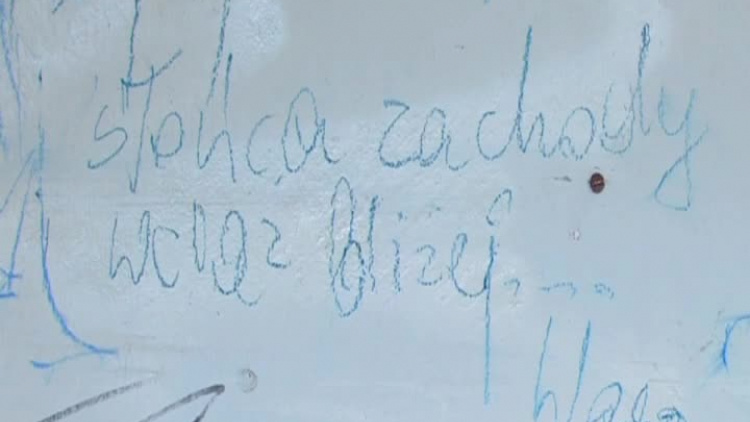 słońca zachody
wciąż bliżej...